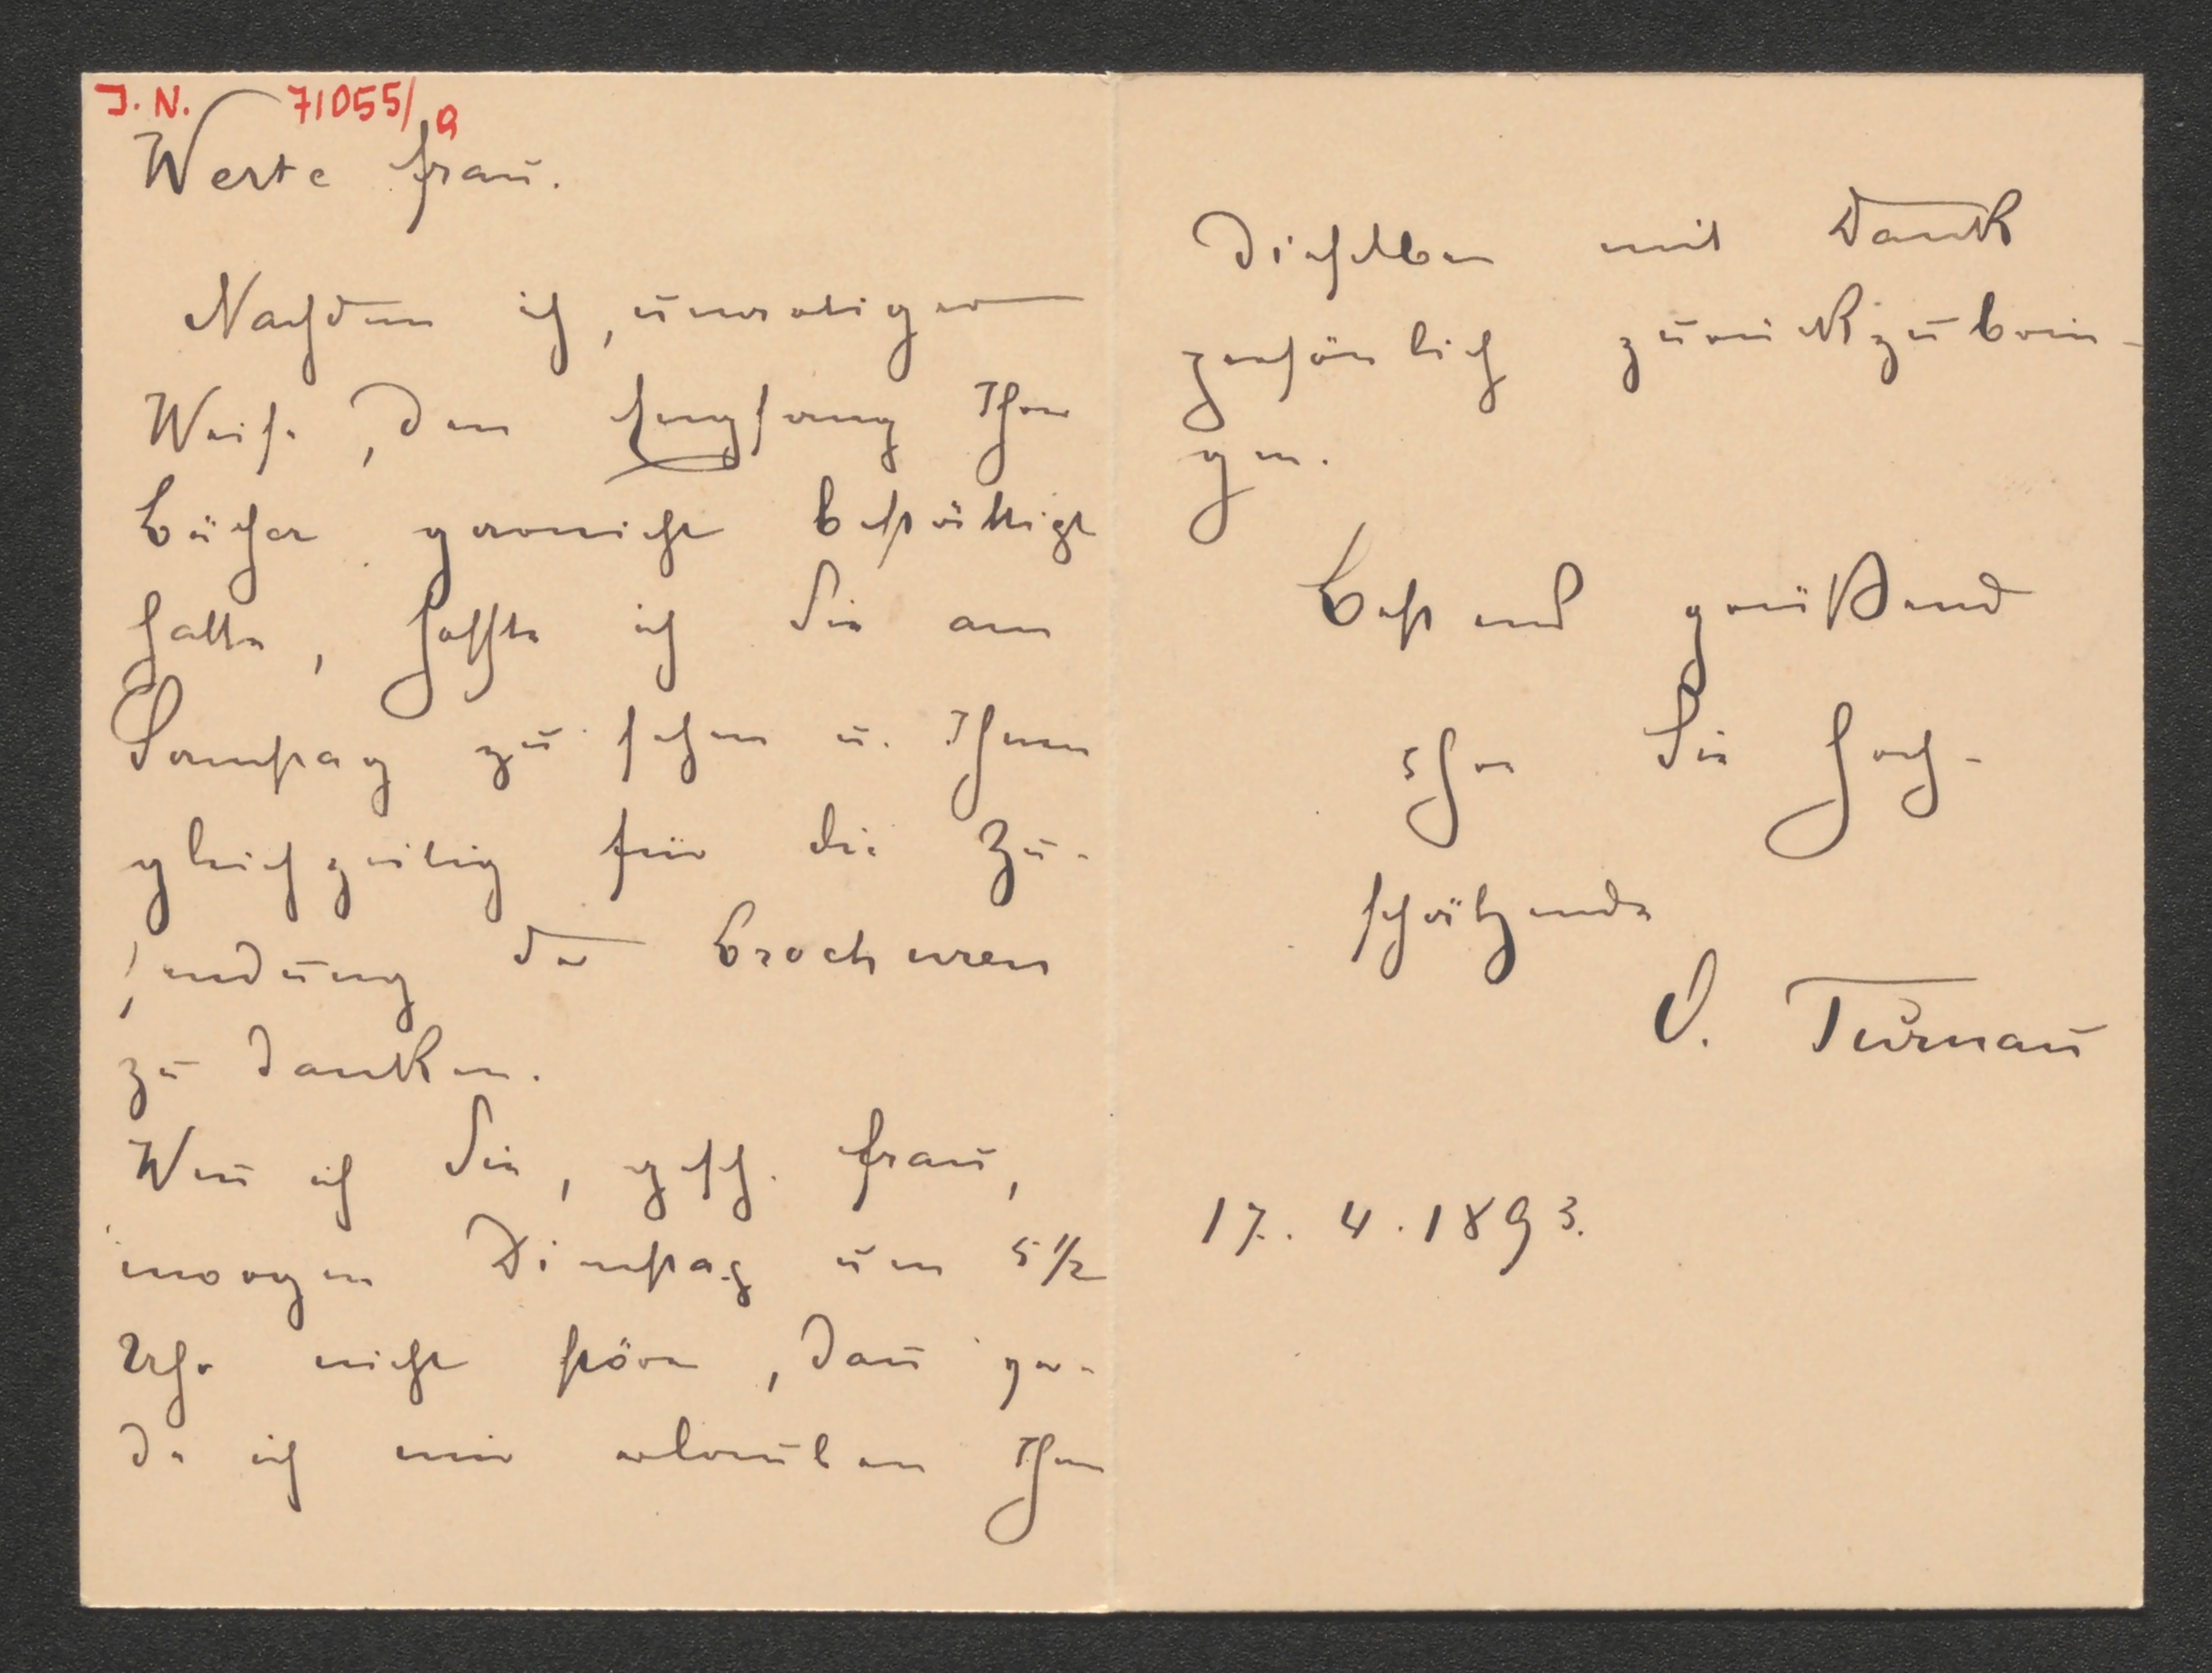 J. N. 71055/a
Werte Frau.
Nachdem ich, unartiger
Weise, den Empfang Ihrer
Bücher garnicht bestättigt
hatte, hoffte ich Sie am
Samstag zu sehen u. Ihnen
gleichzeitig für die Zu-
sendung der Brochuren
zu danken.
Wen̄ ich Sie, gesch. Frau,
morgen Dienstag um 5 1/2
Uhr nicht störe, dan̄ wer-
de ich mir erlauben Ihnen
dieselben mit Dank
persönlich zurückzubrin-
gen.
Bestens grüßend
Ihre Sie hoch-
schätzende
O. Turnau
17. 4. 1893.